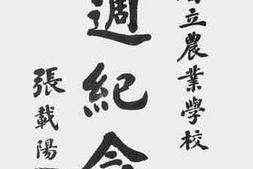 立農業學校
週紀念
張載陽